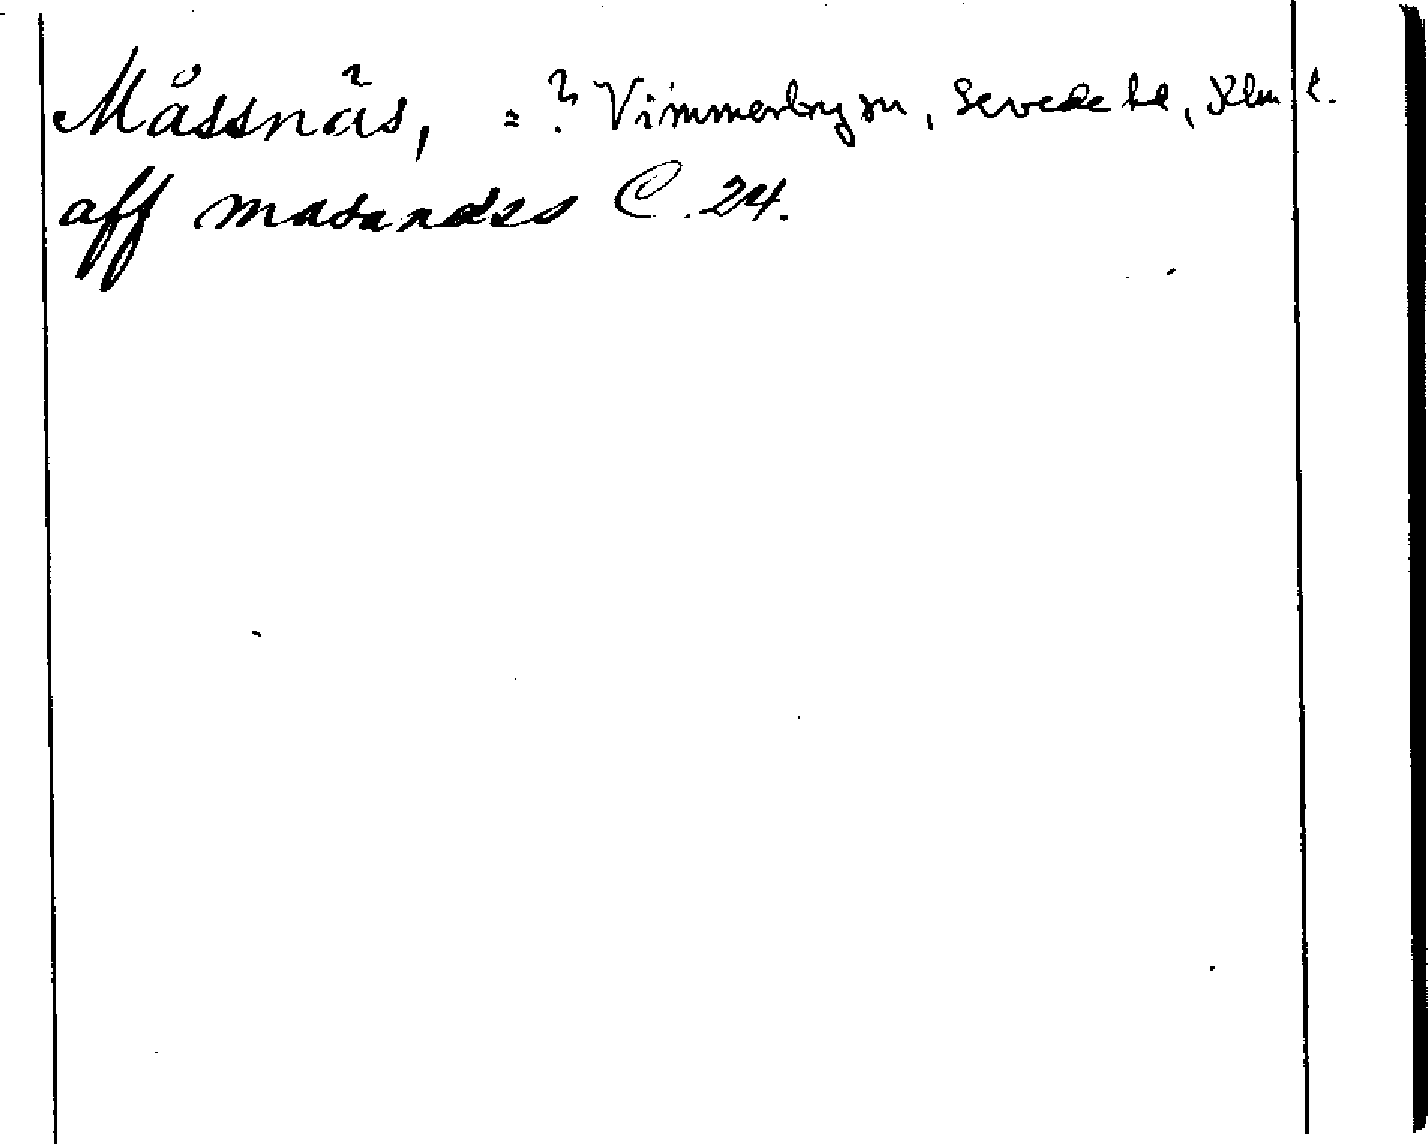 Måssnäs, =? Vimmerby sn, Sevede hd, Klm l.
aff masanæs C. 24.